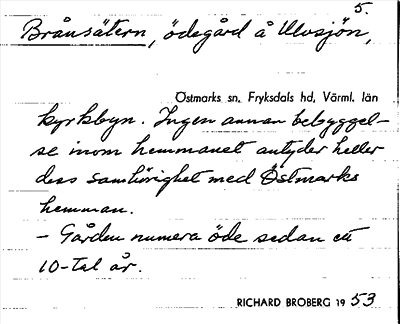 5.
Brånsätern, ödegård å Ulvsjön,
Östmarks sn, Fryksdals hd, Värml. län
kyrkbyn. Ingen annan bebyggel-
se inom hemmanet antyder heller
dess samhörighet med Östmarks
hemman.
- Gården numera öde sedan ett
10-tal år.
RICHARD BROBERG 19 53